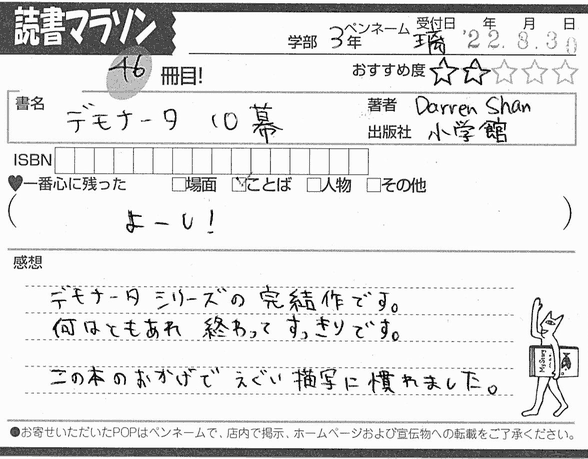 読書マラソン
46 冊目!
学部 3年 ペンネーム 璃 受付日 '22年 8月 30日
おすすめ度 ★★☆☆☆
書名 デモナータ 10幕
著者 Darren Shan
出版社 小学館
ISBN
♥一番心に残った □場面 ☑ことば □人物 □その他
( よーし! )
感想
デモナータ シリーズの 完結作です。
何はともあれ 終わって すっきりです。
この本のおかげで えぐい 描写に 慣れました。
●お寄せいただいたPOPはペンネームで、店内で掲示、ホームページおよび宣伝物への転載をご了承ください。